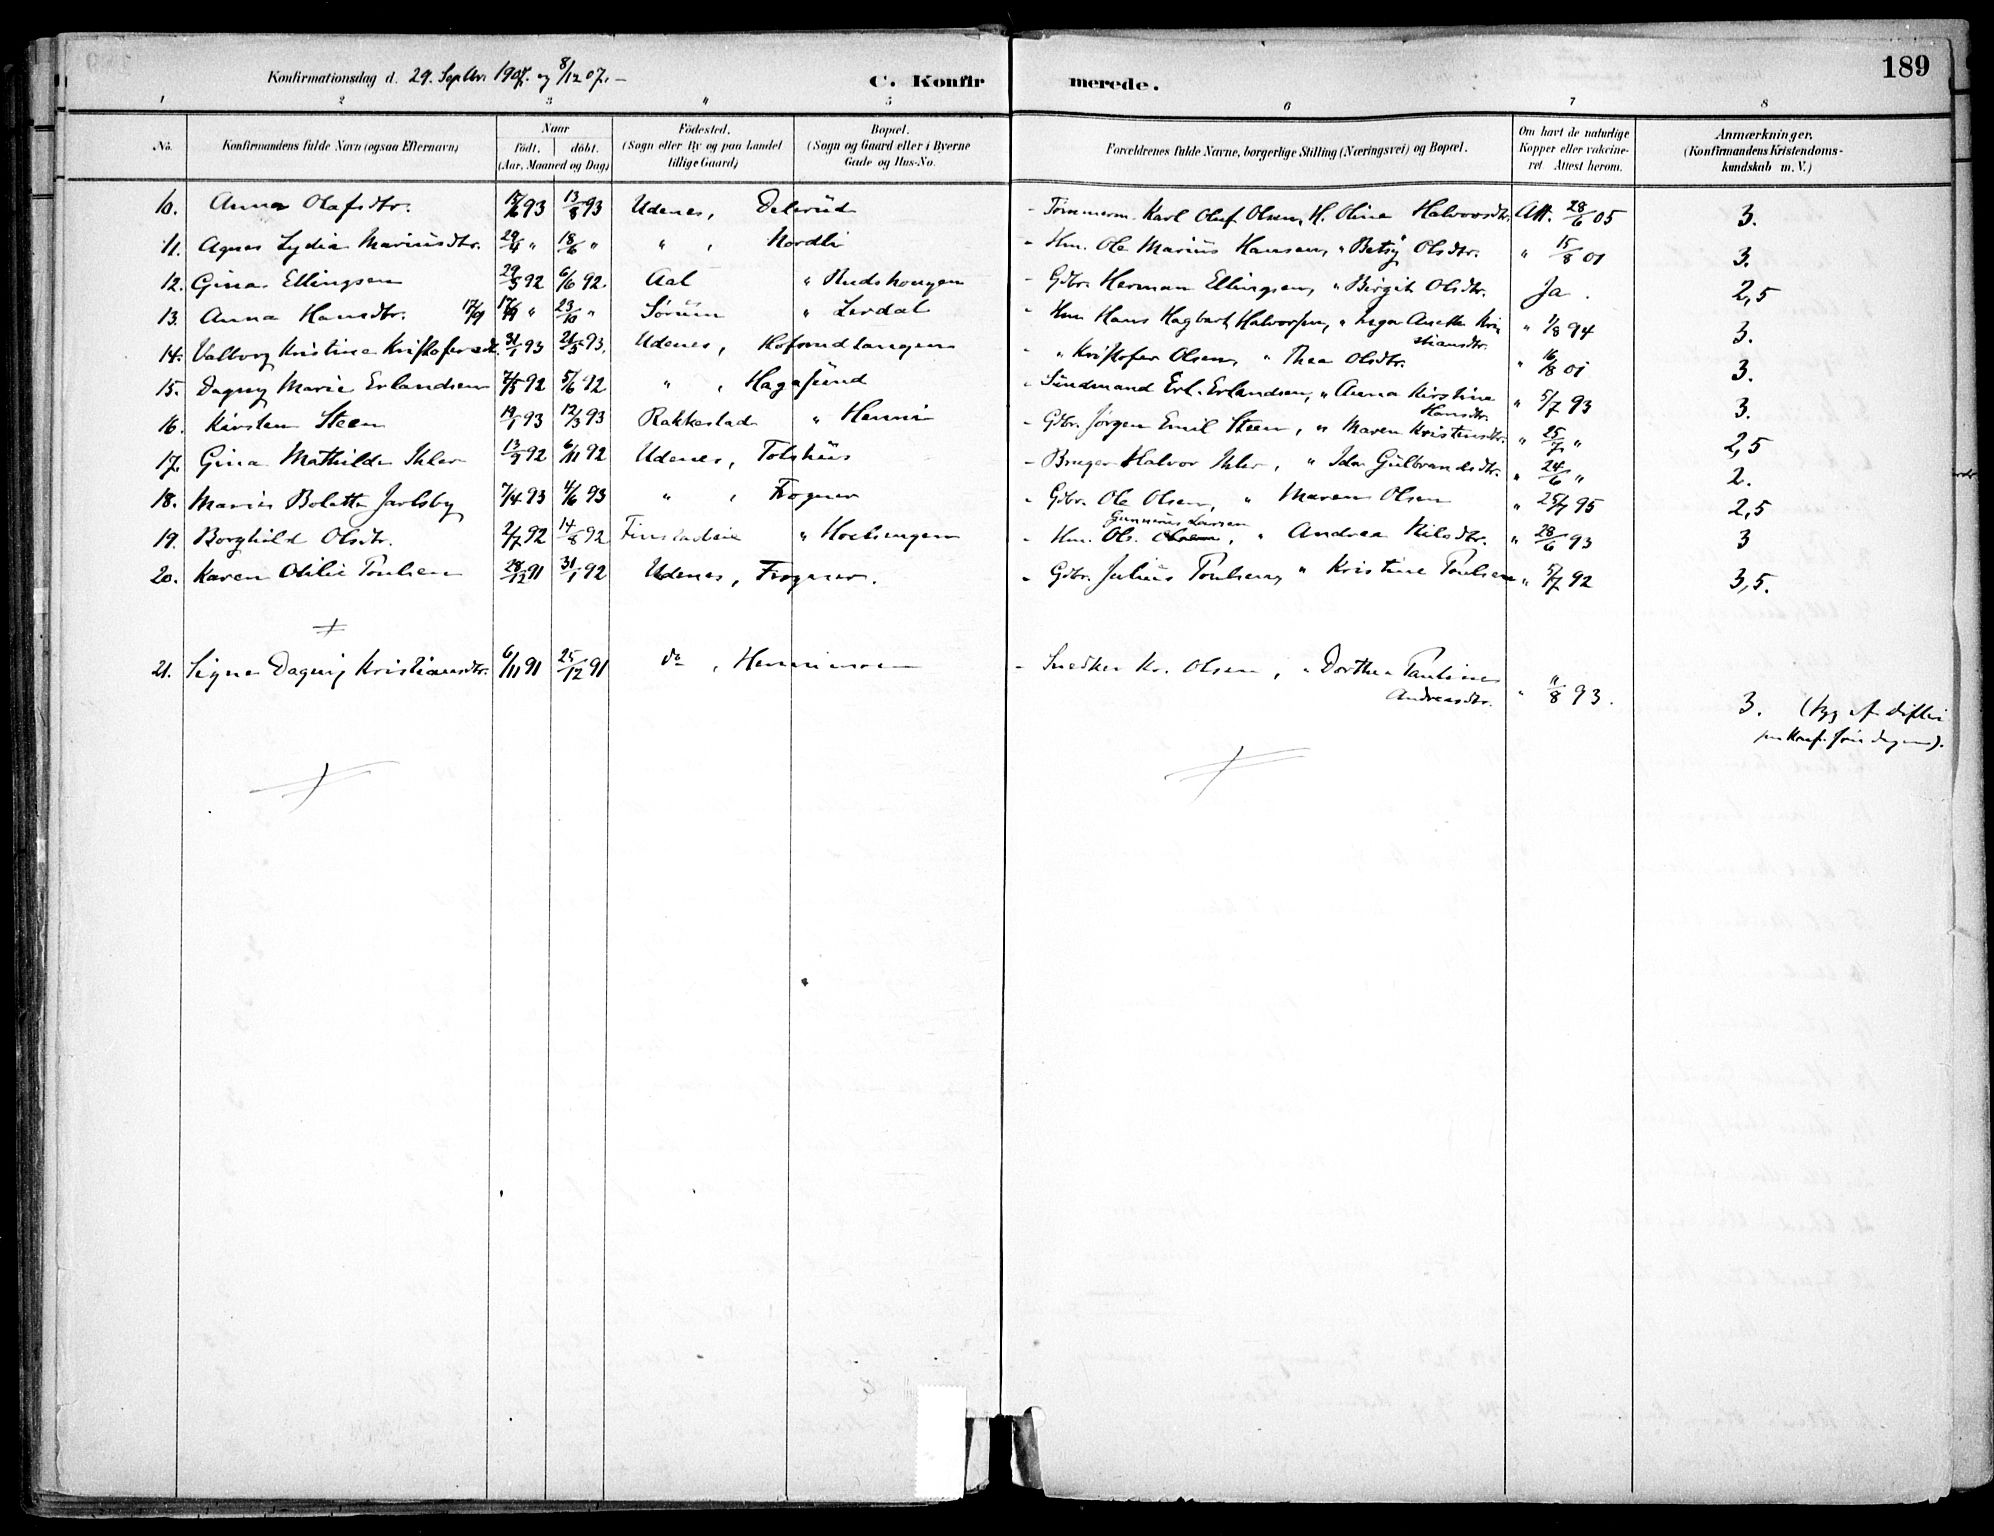 189
Konfirmationsdag d. 29. Septbr. 1907. og 8/12 07. –
C. Konfirmerede.
1 2 3 4 5 6 7 8
No. | Konfirmandens fulde Navn (ogsaa Efternavn) | Naar født. døbt. (Aar, Maaned og Dag) | Fødested. (Sogn eller By og paa Landet tillige Gaard) | Bopæl. (Sogn og Gaard eller i Byerne Gade og Hus-No. | Forældrenes fulde Navne, borgerlige Stilling (Næringsvei) og Bopæl. | Om havt de naturlige Kopper eller vakcineret. Attest herom. | Anmærkninger. (Konfirmandens Kristendomskundskab m. V.)
10. Anna Olafsdtr. 93 13/8 93 Udenes, - Tømmerm. Karl Oluf Olsen, H. Oline Halvorsdtr. Att. 28/6 05 3.
11. Agnes Lydia Mariusdtr. 29/4 " 18/6 " " , Nordli - Hm. Ole Marius Hansen, " Betsy Olsdtr. " 15/8 01 3.
12. Gina Ellingsen 29/3 92 6/6 92. Aal " Rudshougen - Gdbr. Herman Ellingsen, " Birgit Olsdtr. Ja. 2,5
13. Anna Hansdtr. 17/9 17/9 " 23/10 " Sørum " Lerdal - Hm Hans Hagbart Halvorsen, " Inga Anette Kristiansdtr. " 1/8 94 3.
14. Valborg Kristine Kristofersdt. 31/1 93 21/5 93. Udenes, - " Kristofer Olsen, " Thea Olsdtr. " 16/8 01 3.
15. Dagny Marie Erlandsen 7/5 92 5/6 92 " , Hagasund - Sundmand Erl. Erlandsen, " Anna Kirstine Hansdtr. " 5/7 93 3.
16. Kirsten Steen 19/1 93 12/3 93 Rakkestad " Henni - Gdbr. Jørgen Emil Steen, " Maren Kristensdtr. " 25/7 " 2,5
17. Gina Mathilde Ihler 13/9 92 6/11 92 Udenes, Tolshus - Bruger Halvor Ihler, " Ida Gulbrandsdtr. " 24/6 " 2.
18. Marie Bolette Jarlsby 7/4 93 4/6 93 " , Frogner - Gdbr. Ole Olsen, " Maren Olsen " 25/7 95 2,5
19. Borghild Olsdtr. 2/7 92 14/8 92 " - Hm. Ole Gunnerius Larsen, " Andrea Nilsdtr. " 28/6 93 3
20. Karen Otilie Poulsen 28/12 91 31/1 92 Udenes, Frogner. - Gdbr. Julius Poulsen, " Kristine Poulsen " 5/7 92 3,5.
21. Signe Dagny Kristiansdtr. 6/11 91 25/12 91 do , Hennimoen - Snedker Kr. Olsen, " Dorthea Pauline Andreasdtr. " 11/8 93. 3. (syg af difteri
paa Konf. søndagen).